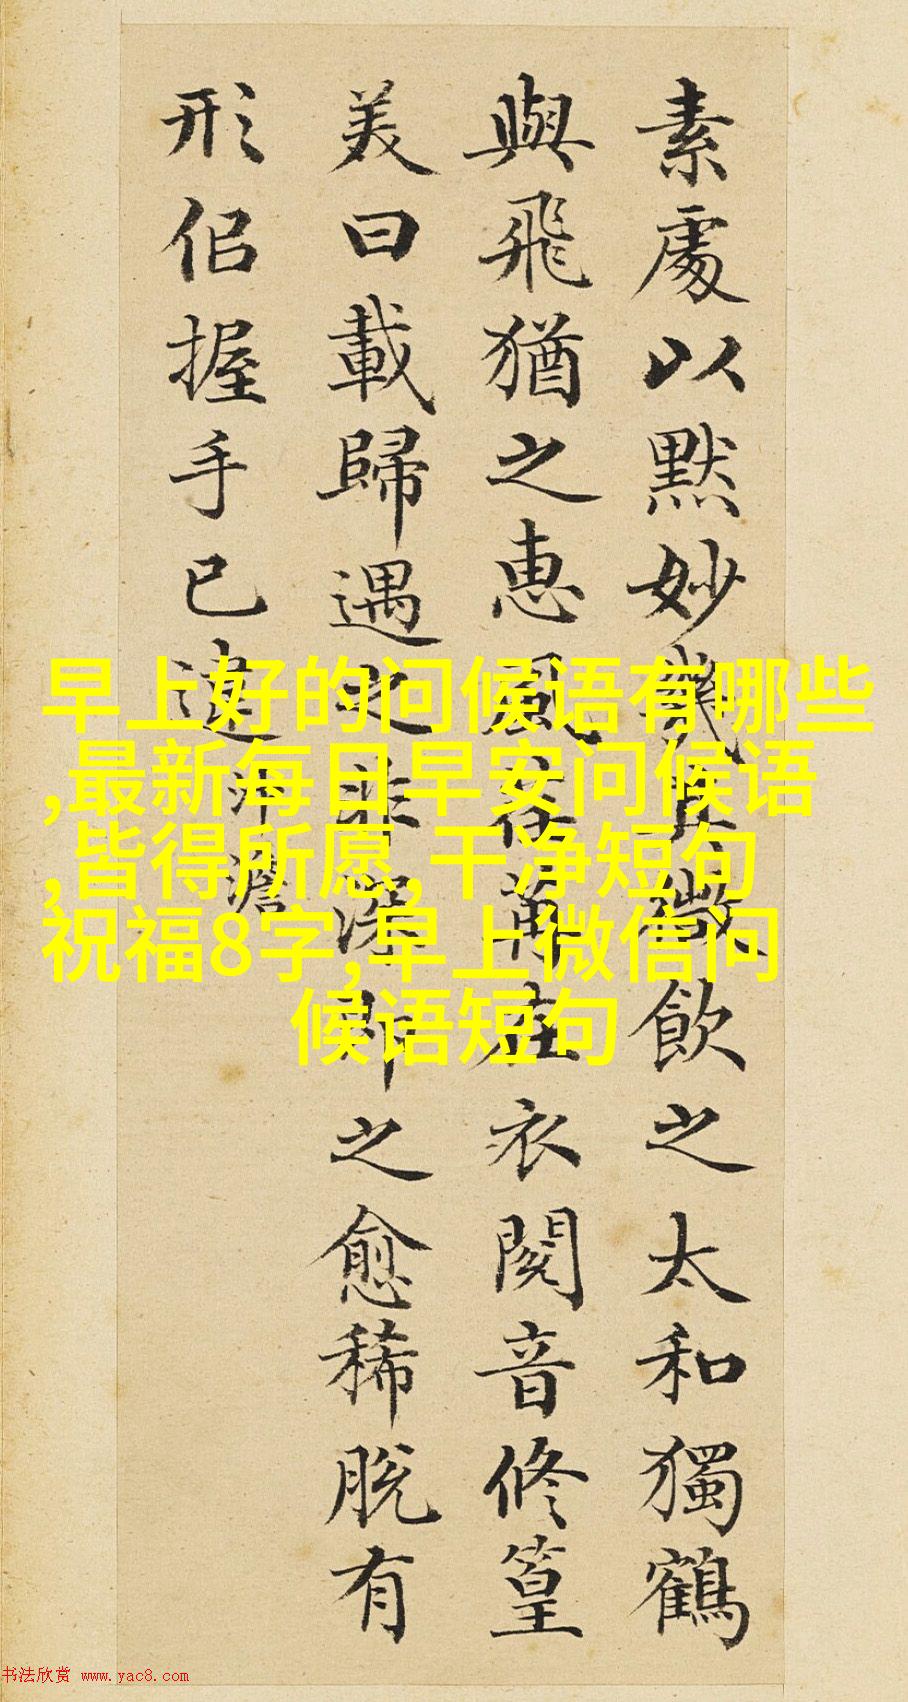 素處以默妙幾其微飲之太和獨鶴
與飛猶之惠風荏苒在衣閱音修篁
美曰載歸遇之非深即之愈稀脫有
形佀握手已違
冲澹
早上好的问候语有哪些
,最新每日早安问候语
,皆得所愿,干净短句
祝福8字,早上微信问
候语短句
书法欣赏 www.yac8.com